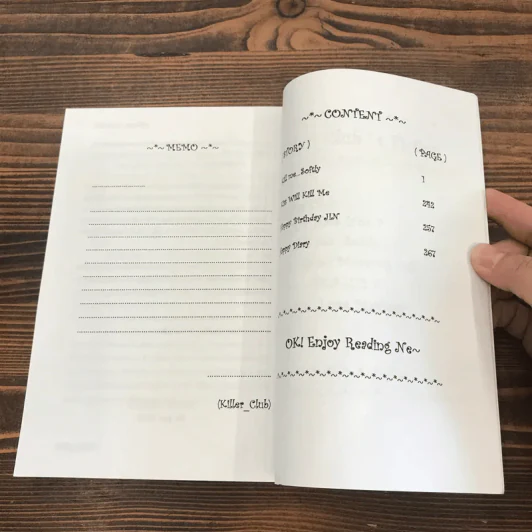 ~*~ MEMO ~*~
(Killer_Club)
~*~ CONTENT ~*~
( PAGE )
me...Softly 1
Will Kill Me
Birthday JLN 257
Diary 367
~*~*~*~*~*~*~*~*~*~*~*~*~
OK! Enjoy Reading Ne~
~*~*~*~*~*~*~*~*~*~*~*~*~